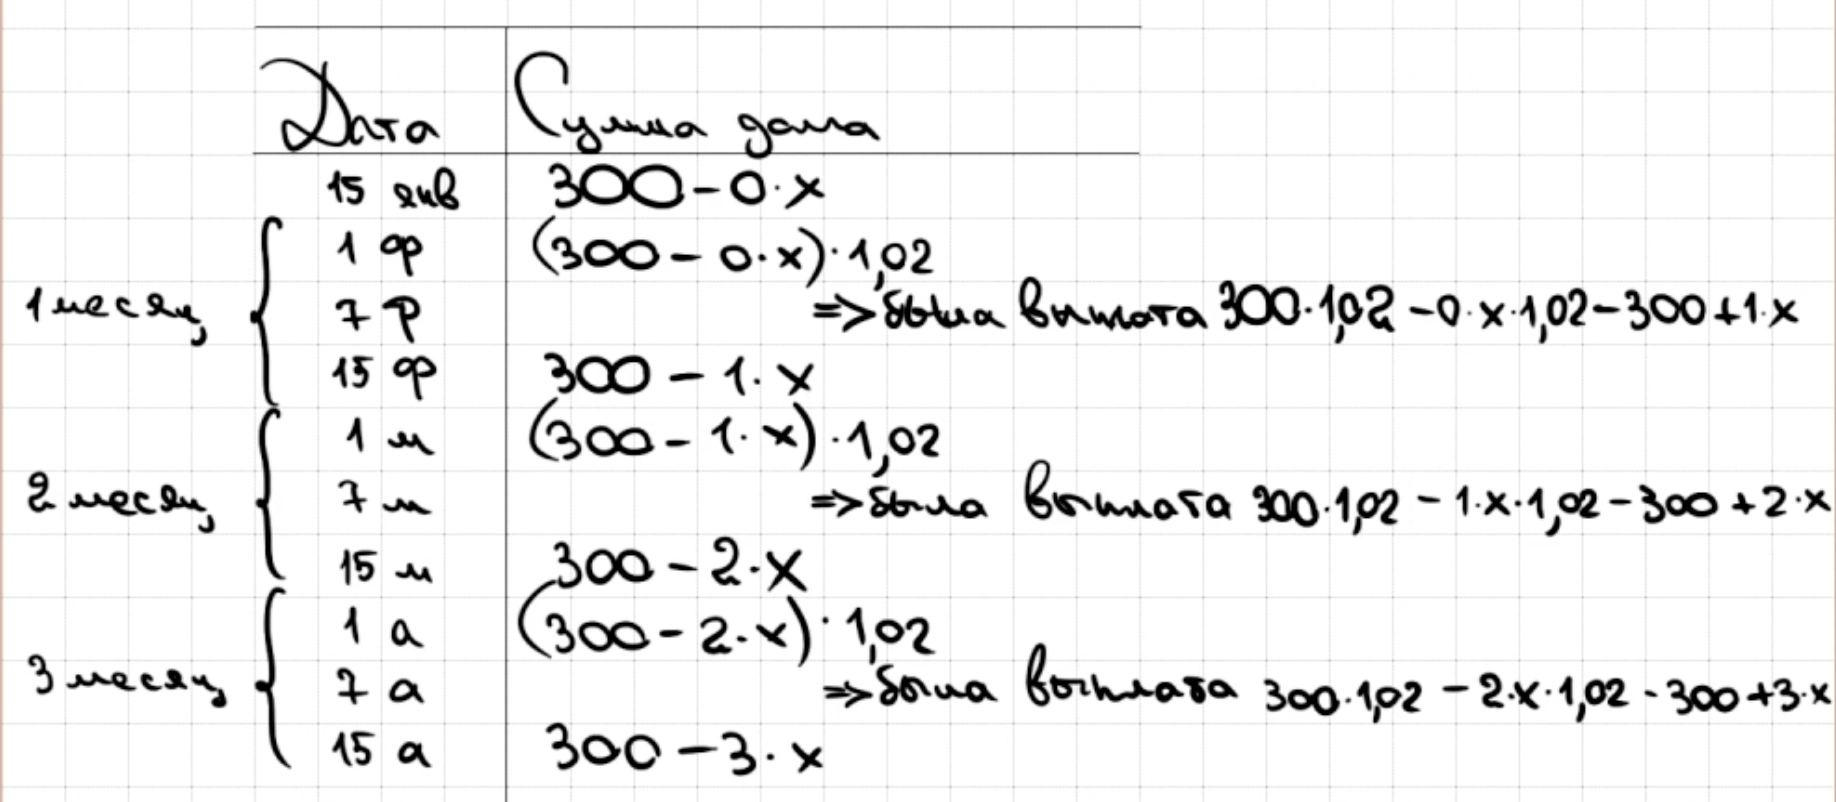 Дата Сумма долга
15 янв 300 - 0 · x
1 ф (300 - 0 · x) · 1,02
1 месяц 7 ф => была выплата 300 · 1,02 - 0 · x · 1,02 - 300 + 1 · x
15 ф 300 - 1 · x
1 м (300 - 1 · x) · 1,02
2 месяц 7 м => была выплата 300 · 1,02 - 1 · x · 1,02 - 300 + 2 · x
15 м 300 - 2 · x
1 а (300 - 2 · x) · 1,02
3 месяц 7 а => была выплата 300 · 1,02 - 2 · x · 1,02 - 300 + 3 · x
15 а 300 - 3 · x